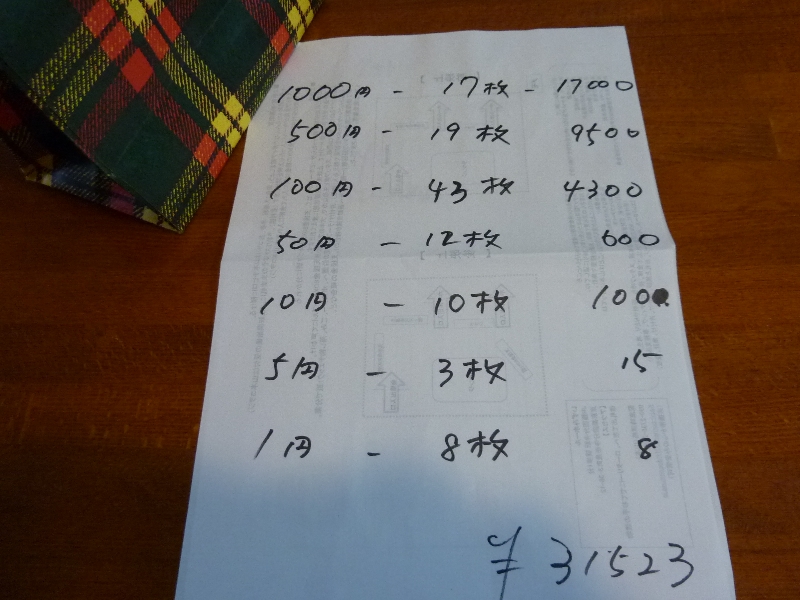 1000円 - 17枚 - 17000
500円 - 19枚 9500
100円 - 43枚 4300
50円 - 12枚 600
10円 - 10枚 100
5円 - 3枚 15
1円 - 8枚 8
¥ 31523